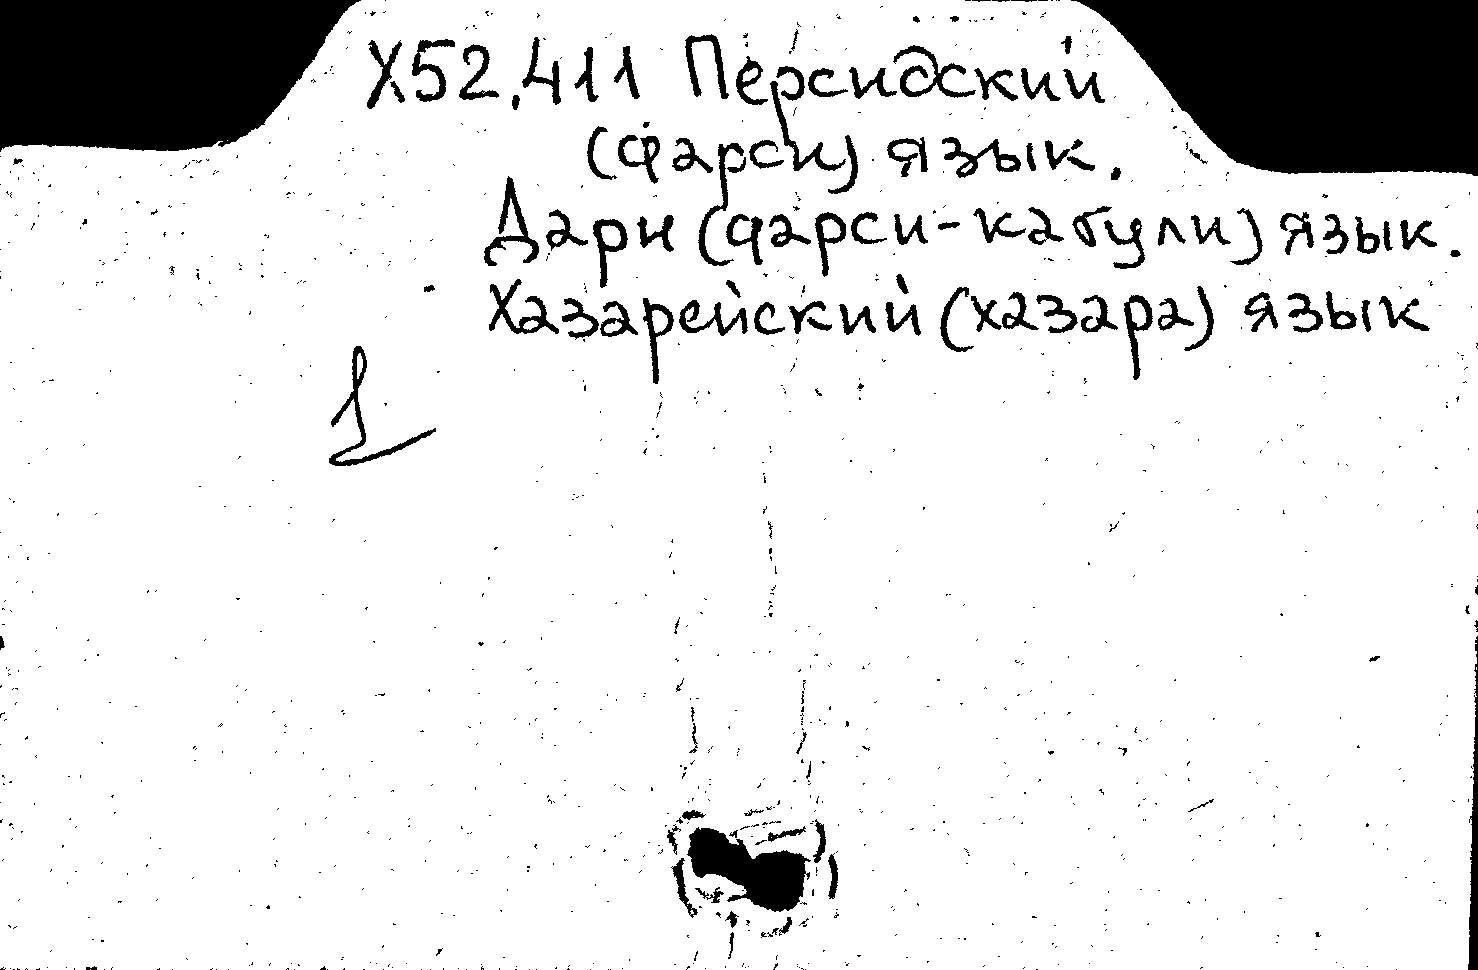 Х52.411 Персидский
(фарси) язык.
Дари (фарси-кабули) язык.
Хазарейский (хазара) язык
1